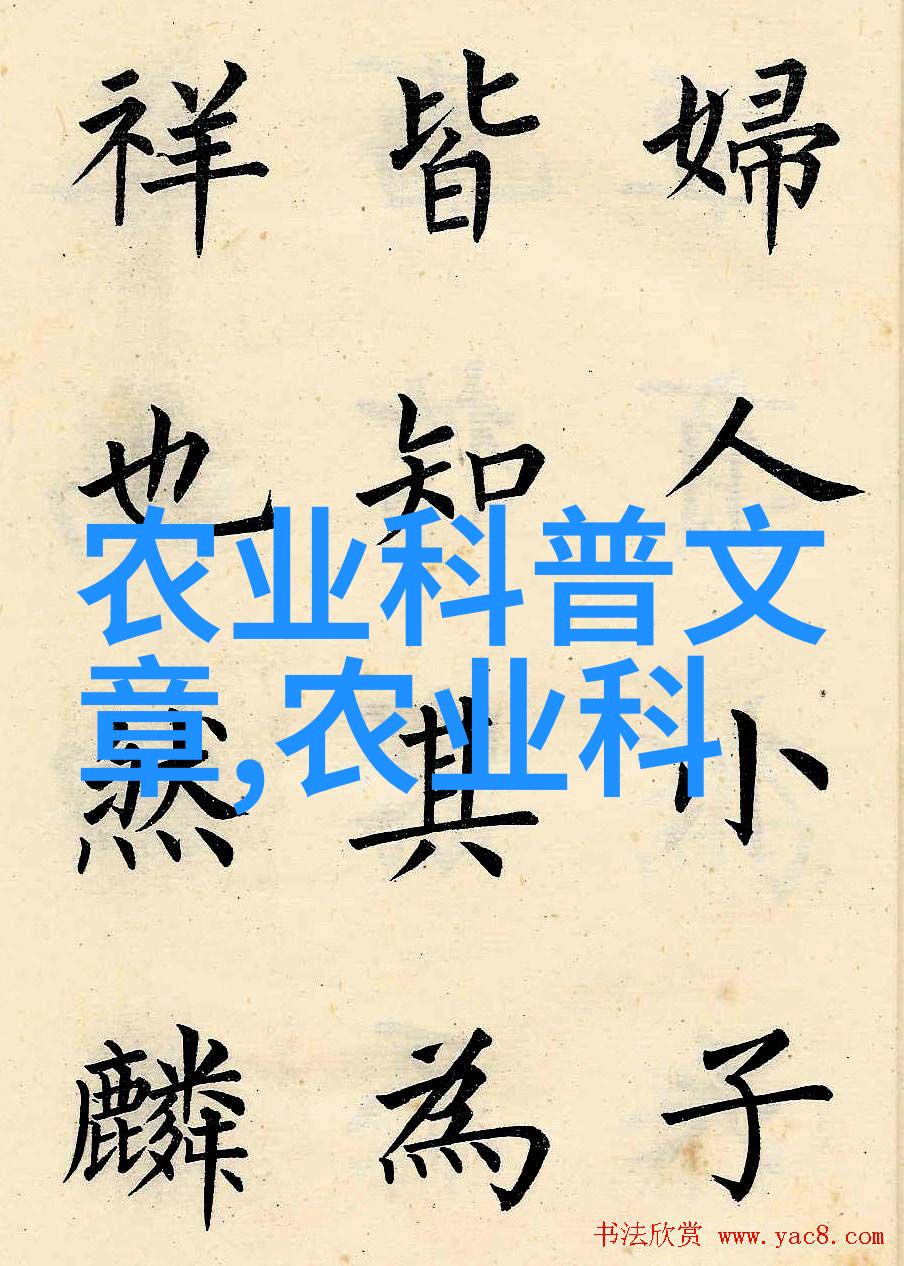 婦人小子
皆知其為
祥也然麟
农业科普文
章,农业科
书法欣赏 www.yac8.com